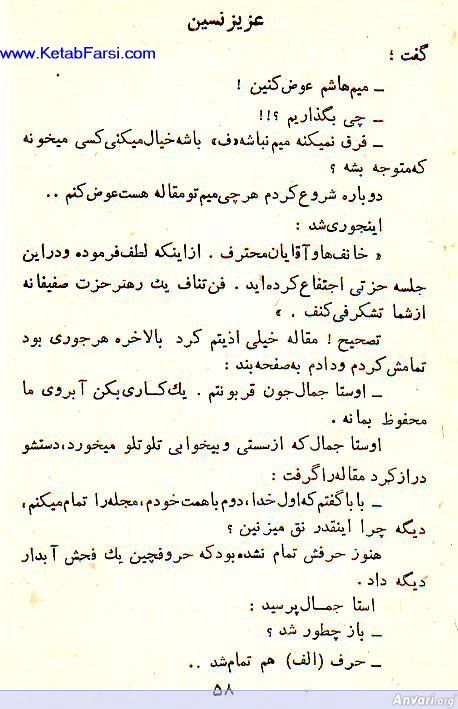 عزیز نسین
www.KetabFarsi.com
گفت ؛
ـ میم‌هاشم عوض کنین !
ـ چی بگذاریم ؟!!
ـ فرق نمیکنه میم نباشه «ف» باشه خیال میکنی کسی میخونه
که متوجه بشه ؟
دوباره شروع کردم هرچی میم تو مقاله هست عوض کنم ..
اینجوری شد :
« خانف‌ها و آقایان محترف . از اینکه لطف فرموده و در این
جلسه حزتی اجتفاع کرده‌اید . فن تناف یك رهتر حزت صفیقانه
از شما تشکر فی‌کنف . »
تصحیح ! مقاله خیلی اذیتم کرد بالاخره هرجوری بود
تمامش کردم و دادم به صفحه بند :
ـ اوستا جمال جون قربونتم . یك کاری بکن آبروی ما
محفوظ بمانه .
اوستا جمال که از سستی و بیخوابی تلو تلو میخورد، دستشو
دراز کرد مقاله را گرفت :
ـ بابا گفتم که اول خدا، دوم با همت خودم، مجله را تمام میکنم،
دیگه چرا اینقدر نق میزنین ؟
هنوز حرفش تمام نشده بود که حروفچین یك فحش آبدار
دیگه داد .
استا جمال پرسید :
ـ باز چطور شد ؟
ـ حرف (الف) هم تمام شد ..
۵۸
Anvari.org